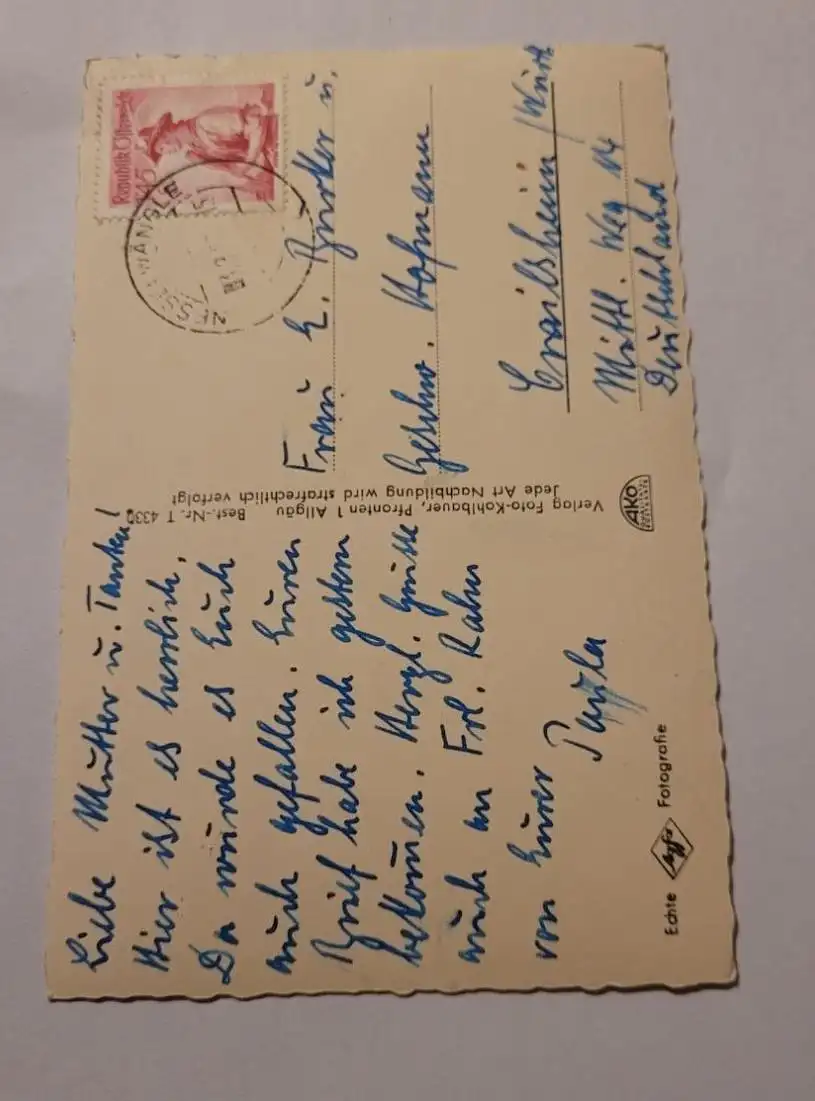 Liebe Mutter u. Tanten!
Hier ist es herrlich.
Da würde es Euch
auch gefallen. Euren
Brief habe ich gestern
bekommen. Herzl. Grüße
auch an Frl. Rahn
von Eurer
Paula
Echte Agfa Fotografie
Verlag Foto-Kohlbauer, Pfronten 1 Allgäu Best.-Nr. T 4330
Jede Art Nachbildung wird strafrechtlich verfolgt
AKO
Republik Österreich
1.45
NESSELWÄNGLE
Frau E. u.
Geschw. Hofmann
Crailsheim /Württ
Mittl. Weg 14
Deutschland